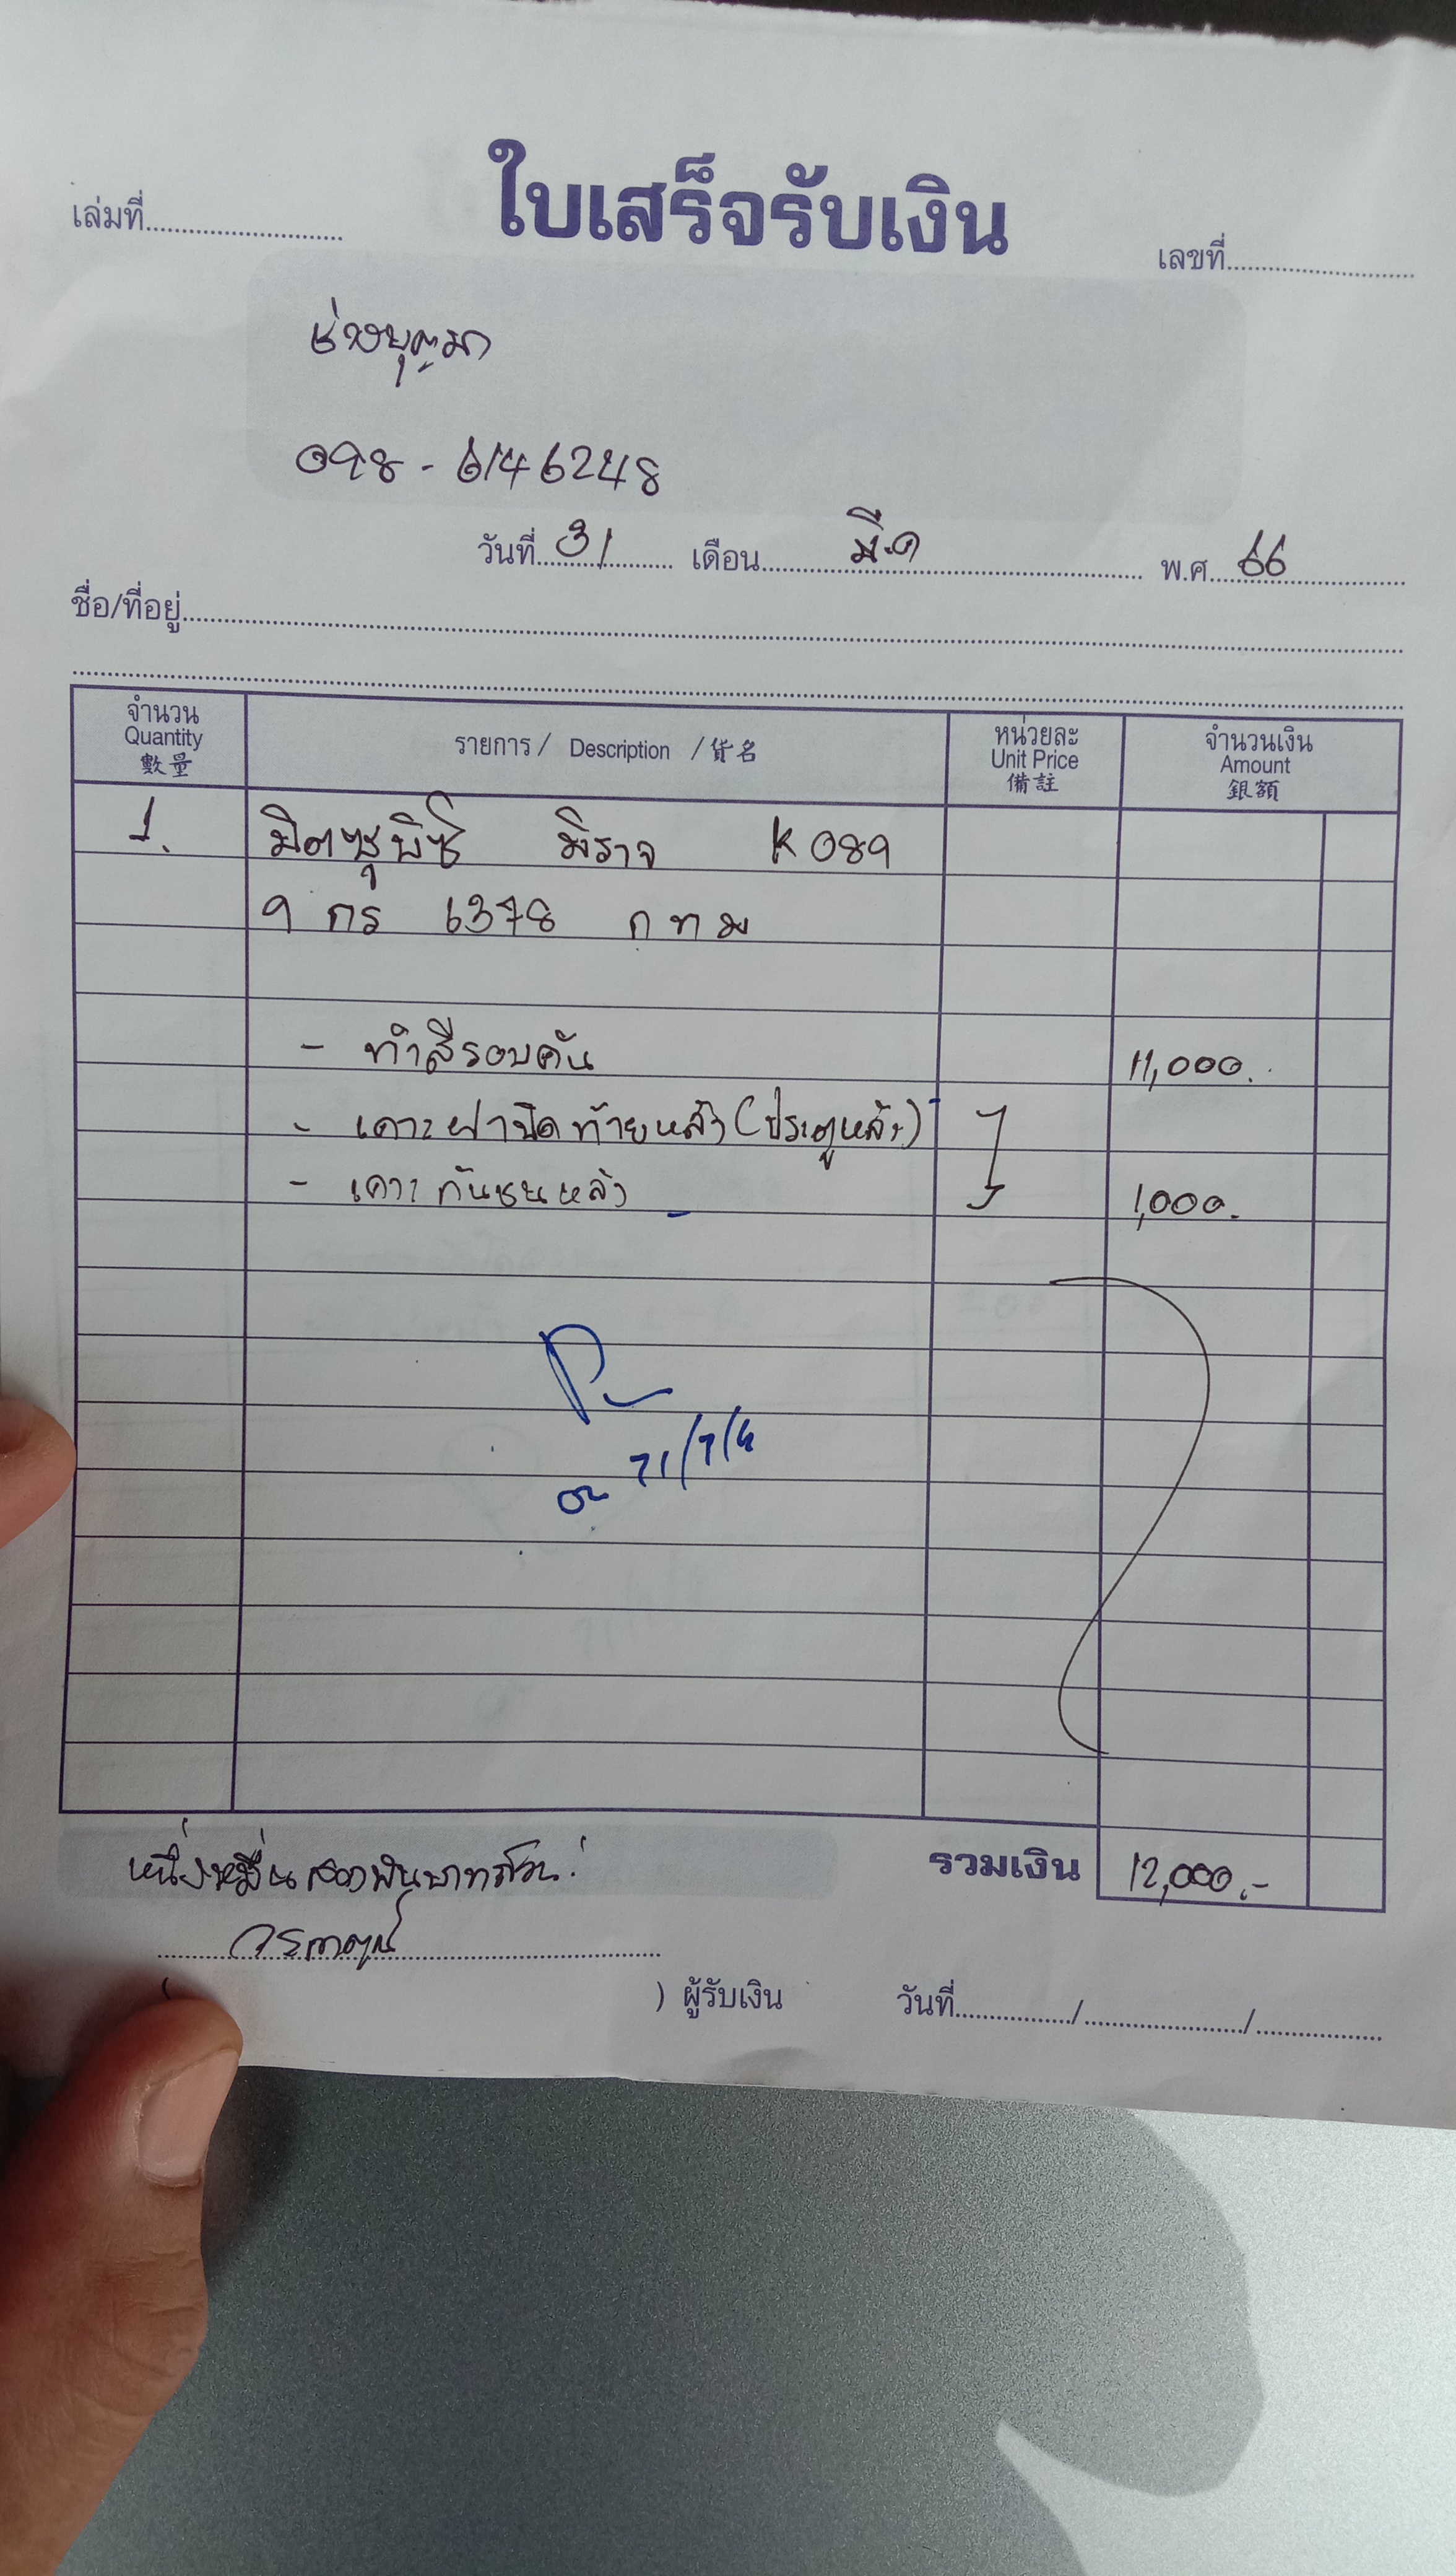 ใบเสร็จรับเงิน
เล่มที่
เลขที่
098-6146248
วันที่ 31 เดือน มี.ค พ.ศ. 66
ชื่อ/ที่อยู่
จำนวน Quantity 數量 รายการ / Description / 貨名 หน่วยละ Unit Price 備註 จำนวนเงิน Amount 銀額
1. มิตซุบิชิ มิราจ K089
9 กร 6378 ก ท ม
- ทำสีรอบคัน 11,000.
- เคาะฝาปิดท้ายหลัง (ประตูหลัง)
- เคาะกันชนหลัง 1,000.
หนึ่งหมื่นสองพันบาทถ้วน รวมเงิน 12,000.-
) ผู้รับเงิน วันที่ / /